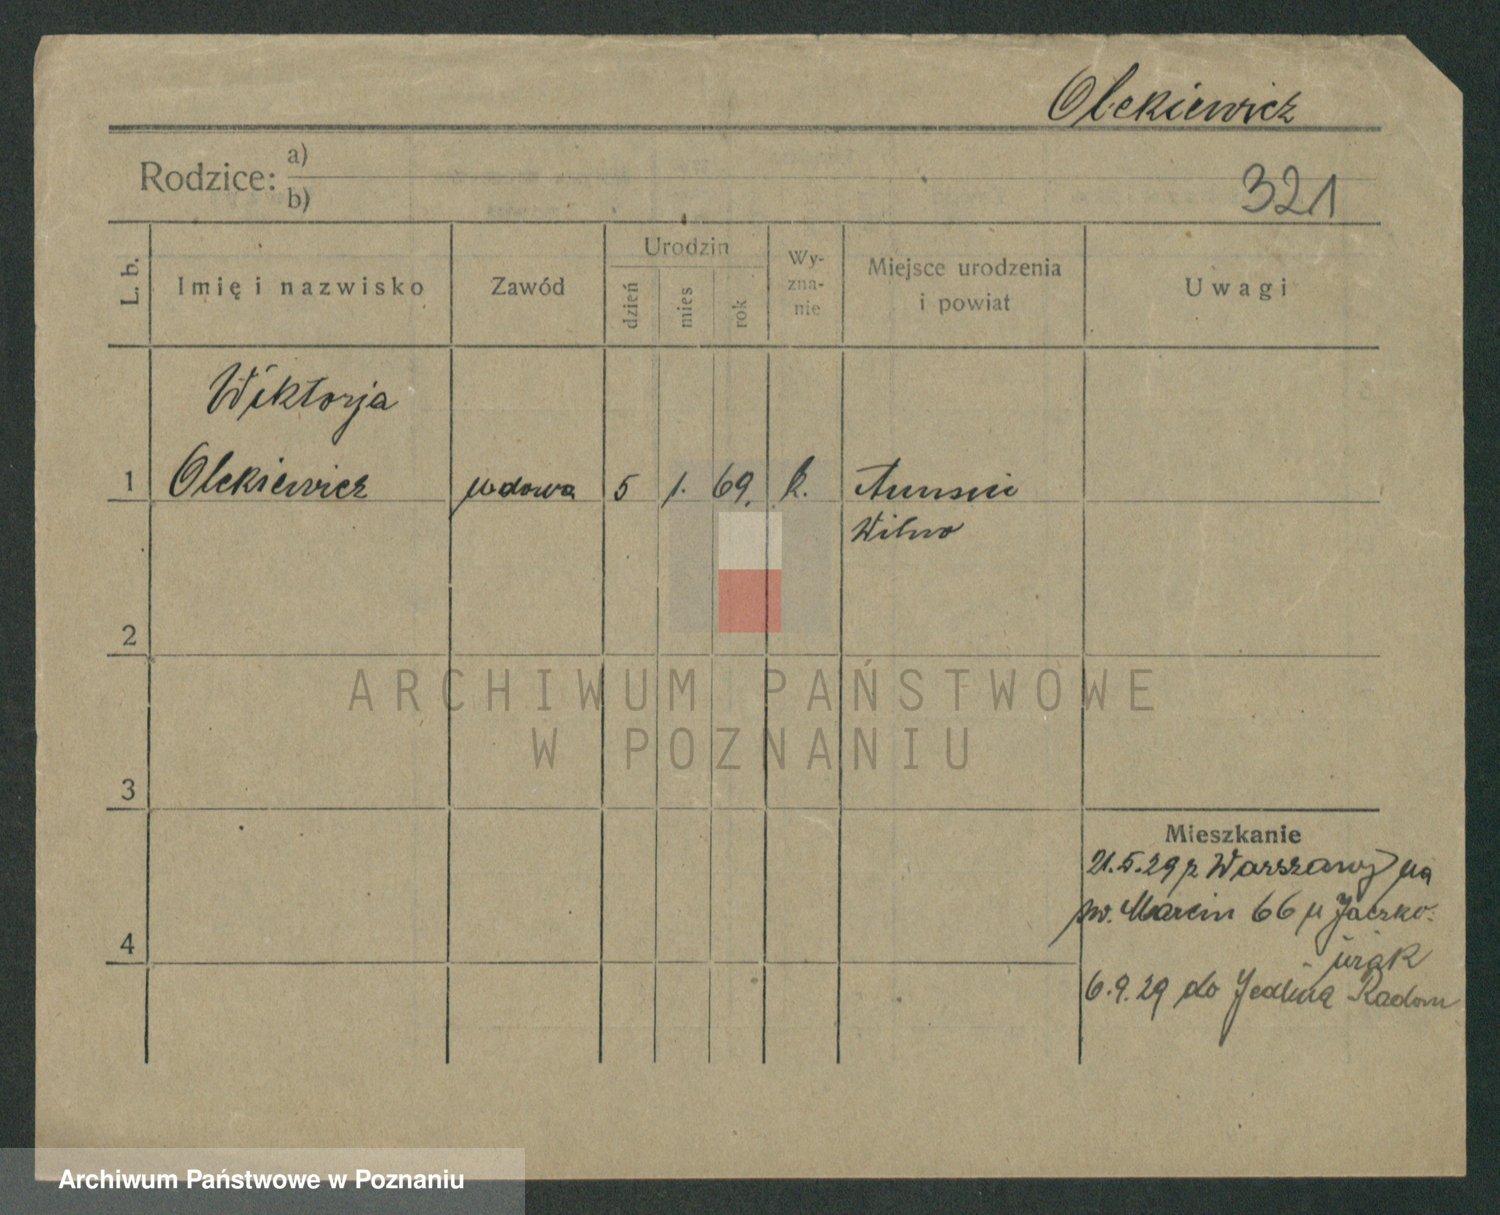 Olekiewicz
Rodzice: a)
b)
321
L. b.
Imię i nazwisko
Zawód
Urodzin
dzień
mies
rok
Wy-
zna-
nie
Miejsce urodzenia
i powiat
Uwagi
Wiktorja
1 Olekiewicz wdowa 5 1. 69. k.
Wilno
2
ARCHIWUM PAŃSTWOWE
W POZNANIU
3
Mieszkanie
21.5.29 z Warszawy na
św. Marcin 66 u
4
6.9.29 do Jedlina Radom
Archiwum Państwowe w Poznaniu